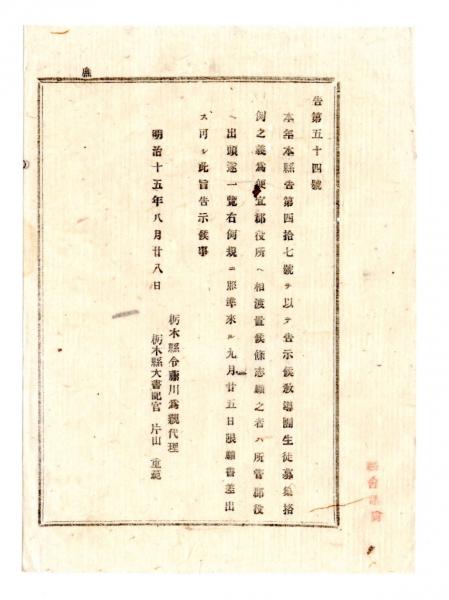 告第五十四號
本年本縣告第四拾七號ヲ以テ告示候敎導團生徒募集格
例之義爲便宜郡役所ヘ相渡置候條志願之者ハ所管郡役
ヘ出頭遂一覽右例規ニ照準來ル九月廿五日限願書差出
ス可シ此旨告示候事
明治十五年八月廿八日
栃木縣令藤川爲親代理
栃木縣大書記官 片山重範